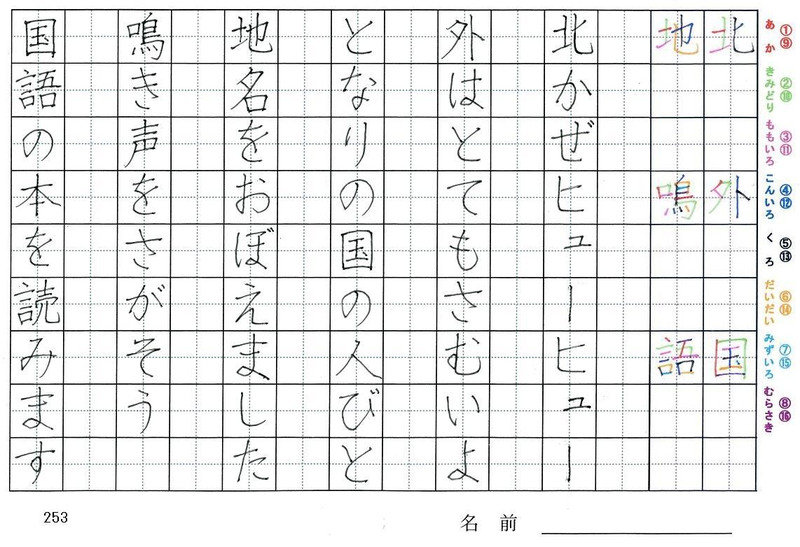 ①⑨ あか
②⑩ きみどり
③⑪ ももいろ
④⑫ こんいろ
⑤⑬ くろ
⑥⑭ だいだい
⑦⑮ みずいろ
⑧⑯ むらさき
北外国
地鳴語
北かぜヒューヒュー
外はとてもさむいよ
となりの国の人びと
地名をおぼえました
鳴き声をさがそう
国語の本を読みます
253
名前